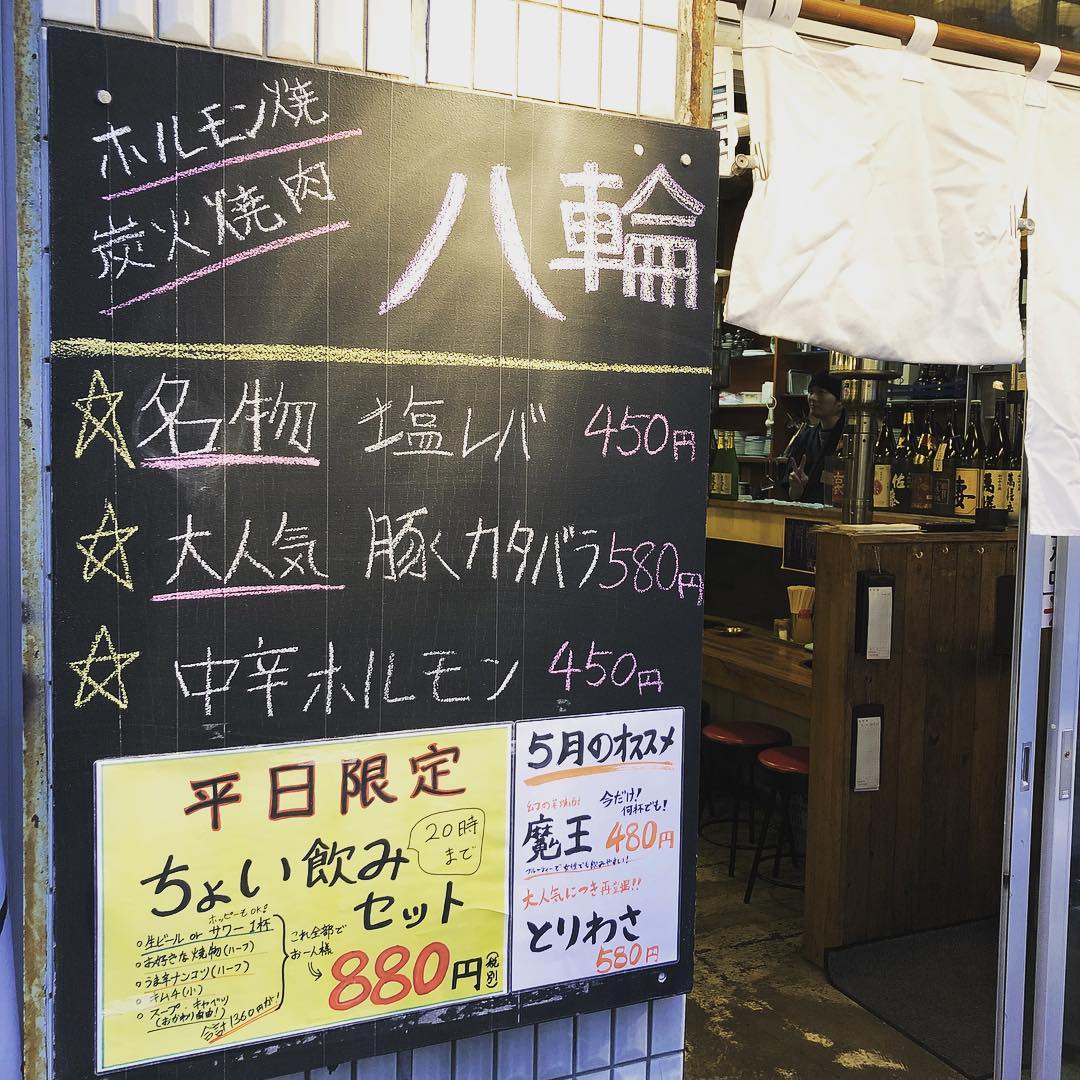 ホルモン焼
炭火焼肉
八輪
名物 塩レバ 450円
大人気 豚くカタバラ 580円
中辛ホルモン 450円
平日限定
20時まで
ちょい飲み
セット
ホッピーもOK!
○生ビール or サワー 1杯
○お好きな焼物(ハーフ)
○うま辛ナンコツ(ハーフ)
○キムチ(小)
○スープ・キャベツ
(おかわり自由!)
合計1360円が!
これ全部で
お一人様
880円(税別)
5月のオススメ
今だけ!
何杯でも!
魔王 480円
フルーティーで女性でも飲みやすい!
大人気につき再登場!!
とりわさ
580円